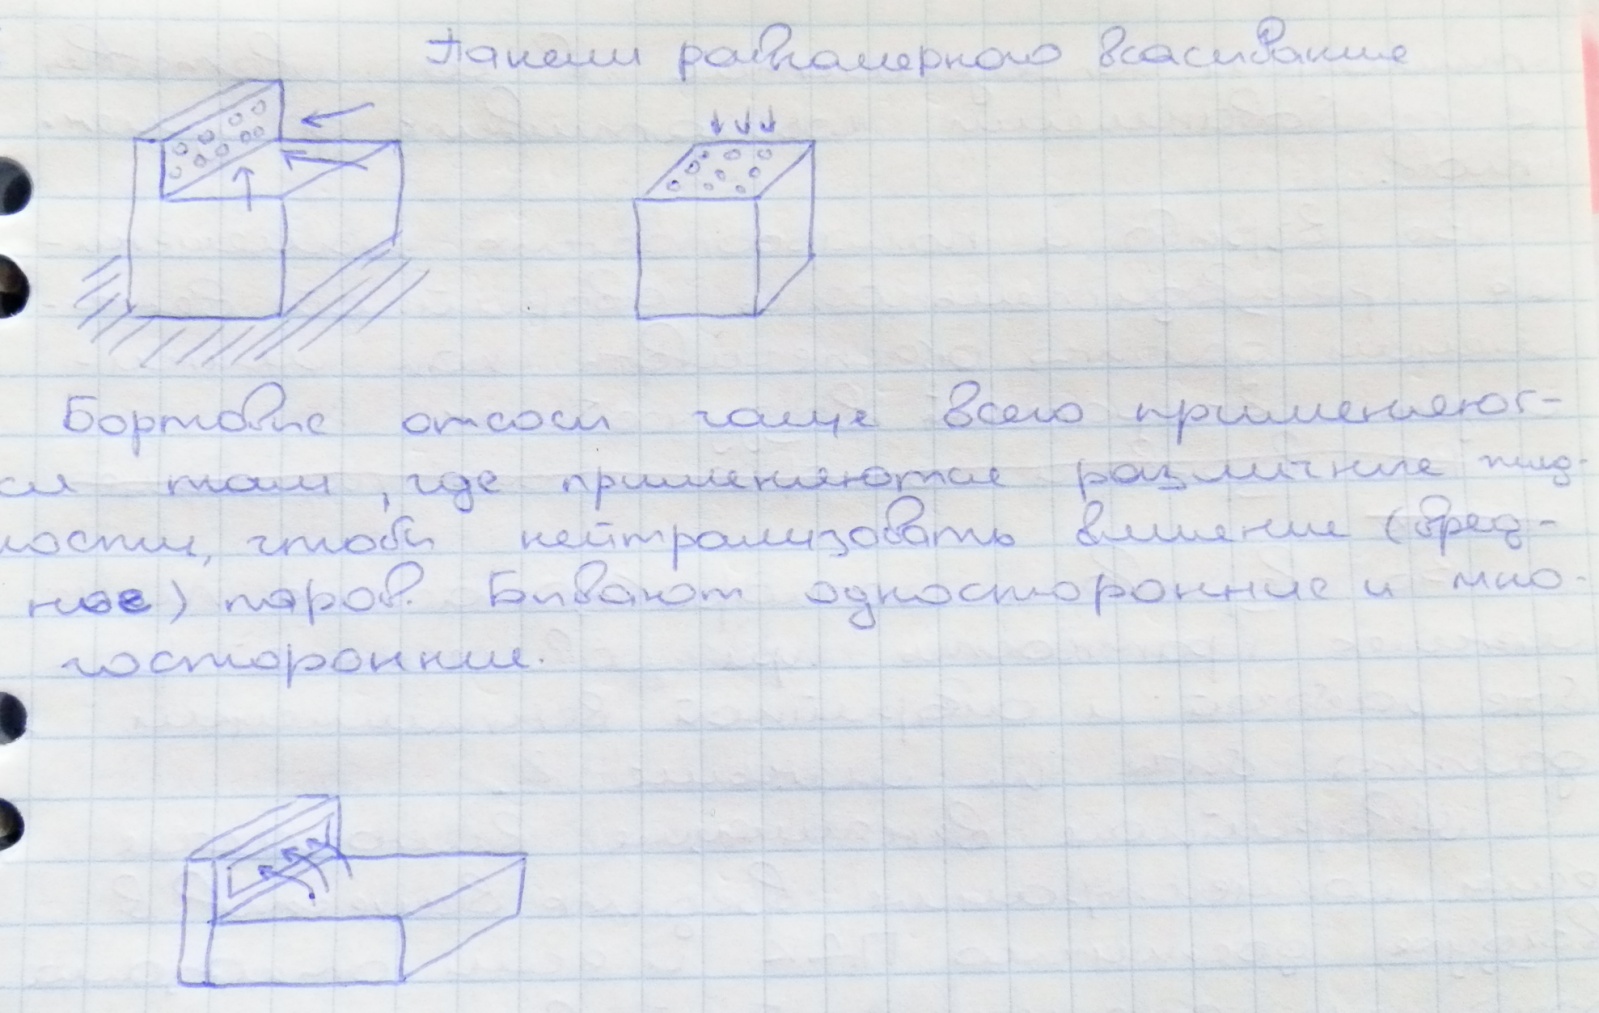 Панели равномерного всасывание
Бортовые отсосы чаще всего применяют-
ся там, где применяются различные жид-
кости, чтобы нейтрализовать влияние (вред-
ное) паров. Бывают односторонние и мно-
госторонние.